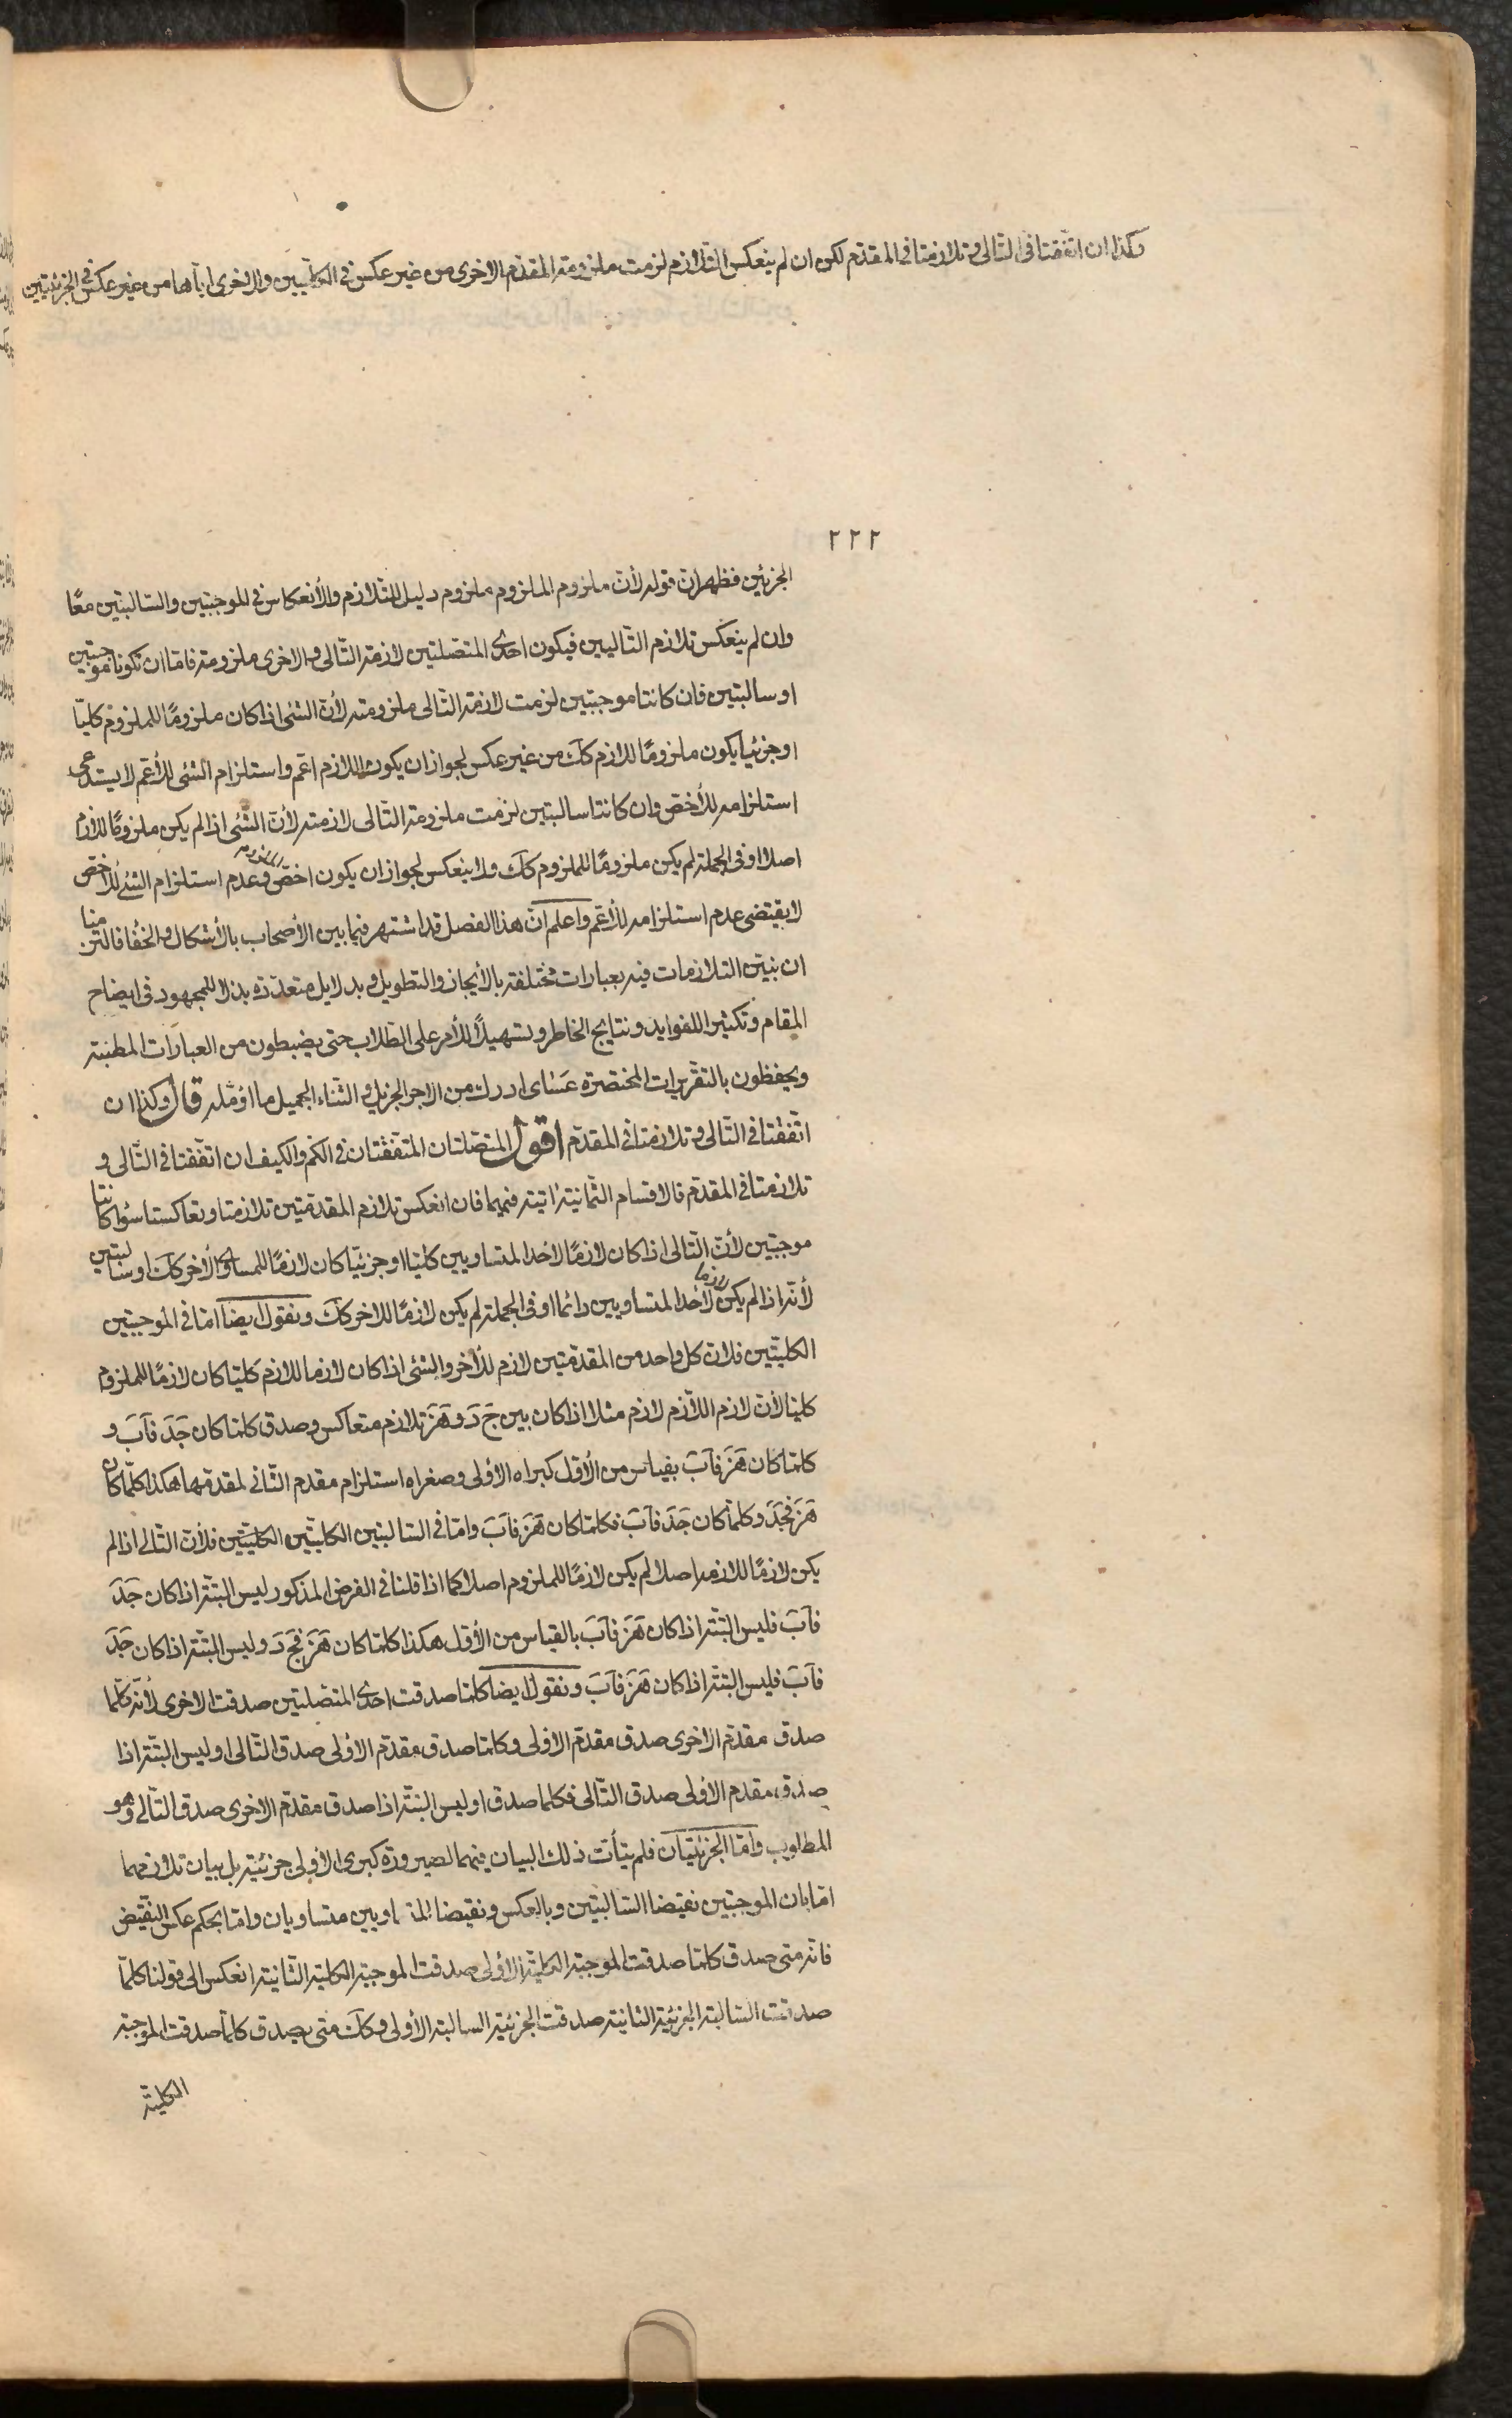 وكذا ان اتفقتا فى التالى وتلازمتا فى المقدّم لكن ان لم ينعكس التلازم لزمت ملزومة المقدّم الاخرى من غير عكس فى الكليّتين والاخرى اياها من غير عكس فى الجزئيتين
٢٢٢
الجزئين فظهر ان قوله لأنّ ملزوم الملزوم ملزوم دليل للتلازم والأنعكاس فى الموجبتين والسالبتين معًا
وان لم ينعكس تلازم التاليين فيكون احدى المتصلتين لازمة التالى والاخرى ملزومته فامّا ان تكونا موجبتين
او سالبتين فان كانتا موجبتين لزمت لازمة التالى ملزومته لأنّ الشئ اذا كان ملزومًا للملزوم كليّا
او جزئيا يكون ملزومًا للازم كك من غير عكس لجواز ان يكون اللازم اعمّ واستلزام الشئ للأعمّ لا يستدعى
استلزامه للأخصّ وان كانتا سالبتين لزمت ملزومة التالى لازمته لأنّ الشئ اذا لم يكن ملزومًا للازم
اصلا او فى الجملة لم يكن ملزومًا للملزوم كك ولا ينعكس لجواز ان يكون الملزوم اخصّ وعدم استلزام الشئ للأخصّ
لا يقتضى عدم استلزامه للأعمّ واعلم انّ هذا الفصل قد اشتهر فيما بين الأصحاب بالأشكال والخفا فالتزمنا
ان نبيّن التلازمات فيه بعبارات مختلفة بالأيجاز والتطويل وبدلايل متعدّدة بذلا للمجهود فى ايضاح
المقام وتكثيرا للفوايد ونتايج الخاطر وتسهيلًا للأمر على الطلاب حتى يضبطون من العبارات المطنبة
ويحفظون بالتقريرات المختصرة عسىاى ادرك من الاجر الجزيل والثناء الجميل ما اؤمّله قال وكذا ان
اتفقتا فى التالى وتلازمتا فى المقدّم اقول المتصلتان المتفقتان فى الكم والكيف ان اتفقتا فى التالى و
تلازمتا فى المقدّم فالاقسام الثمانية اتية فيهما فان انعكس تلازم المقدمتين تلازمتا وتعاكستا سواء كانتا
موجبتين لأنّ التالى اذا كان لازمًا لاحد المتساويين كليّا او جزئيّا كان لازمًا للمساوى الأخر كك او سالبتين
لأنّه اذا لم يكن لازما لأحد المتساويين دائما او فى الجملة لم يكن لازمًا للاخر كك ونقول ايضا امّا فى الموجبتين
الكليّتين فلان كل واحد من المقدمتين لازم للأخر والشئ اذا كان لازما للازم كليّا كان لازمًا للملزوم
كليّا لأن لازم اللازم لازم مثلا اذا كان بين ج د و ه ز تلازم متعاكس وصدق كلما كان ج د ف ا ب و
كلما كان ه ز ف ا ب بقياس من الأوّل كبراه الأولى وصغراه استلزام مقدم الثانى لمقدمها هكذا كلما كان
ه ز فج د وكلما كان ج د ف ا ب فكلما كان ه ز ف ا ب وامّا فى السالبتين الكليّتين الكليّتين فلأن التالى اذا لم
يكن لازمًا للازمه اصلا لم يكن لازمًا للملزوم اصلا كما اذا قلنا فى الفرض المذكور ليس البتّة اذا كان ج د
ف ا ب فليس البتّة اذا كان ه ز ف ا ب بالقياس من الأوّل هكذا كلما كان ه ز فج د وليس البتّة اذا كان ج د
ف ا ب فليس البتّة اذا كان ه ز ف ا ب ونقول ايضا كلما صدقت احدى المتصلتين صدقت الاخرى لأنّه كلّما
صدق مقدّم الاخرى صدق مقدّم الاولى وكلما صدق مقدّم الأولى صدق التالى او ليس البتّة اذا
صدق مقدم الأولى صدق التالى فكلما صدق او ليس البتّة اذا صدق مقدّم الاخرى صدق التالى وهو
المطلوب وامّا الجزئيّتان فلم يتأت ذلك البيان فيهما لصيرورة كبرى الأولى جزئية بل بيان تلازمهما
امّا بان الموجبتين نقيضا السالبتين وبالعكس ونقيضا المتساويين متساويان وامّا بحكم عكس النقيض
فانّه متى صدق كلما صدقت الموجبة الكلية الأولى صدقت الموجبة الكلية الثانية انعكس الى قولنا كلمّا
صدقت السالبة الجزئية الثانية صدقت الجزئية السالبة الأولى وكك متى يصدق كلما صدقت الموجبة
الكلية